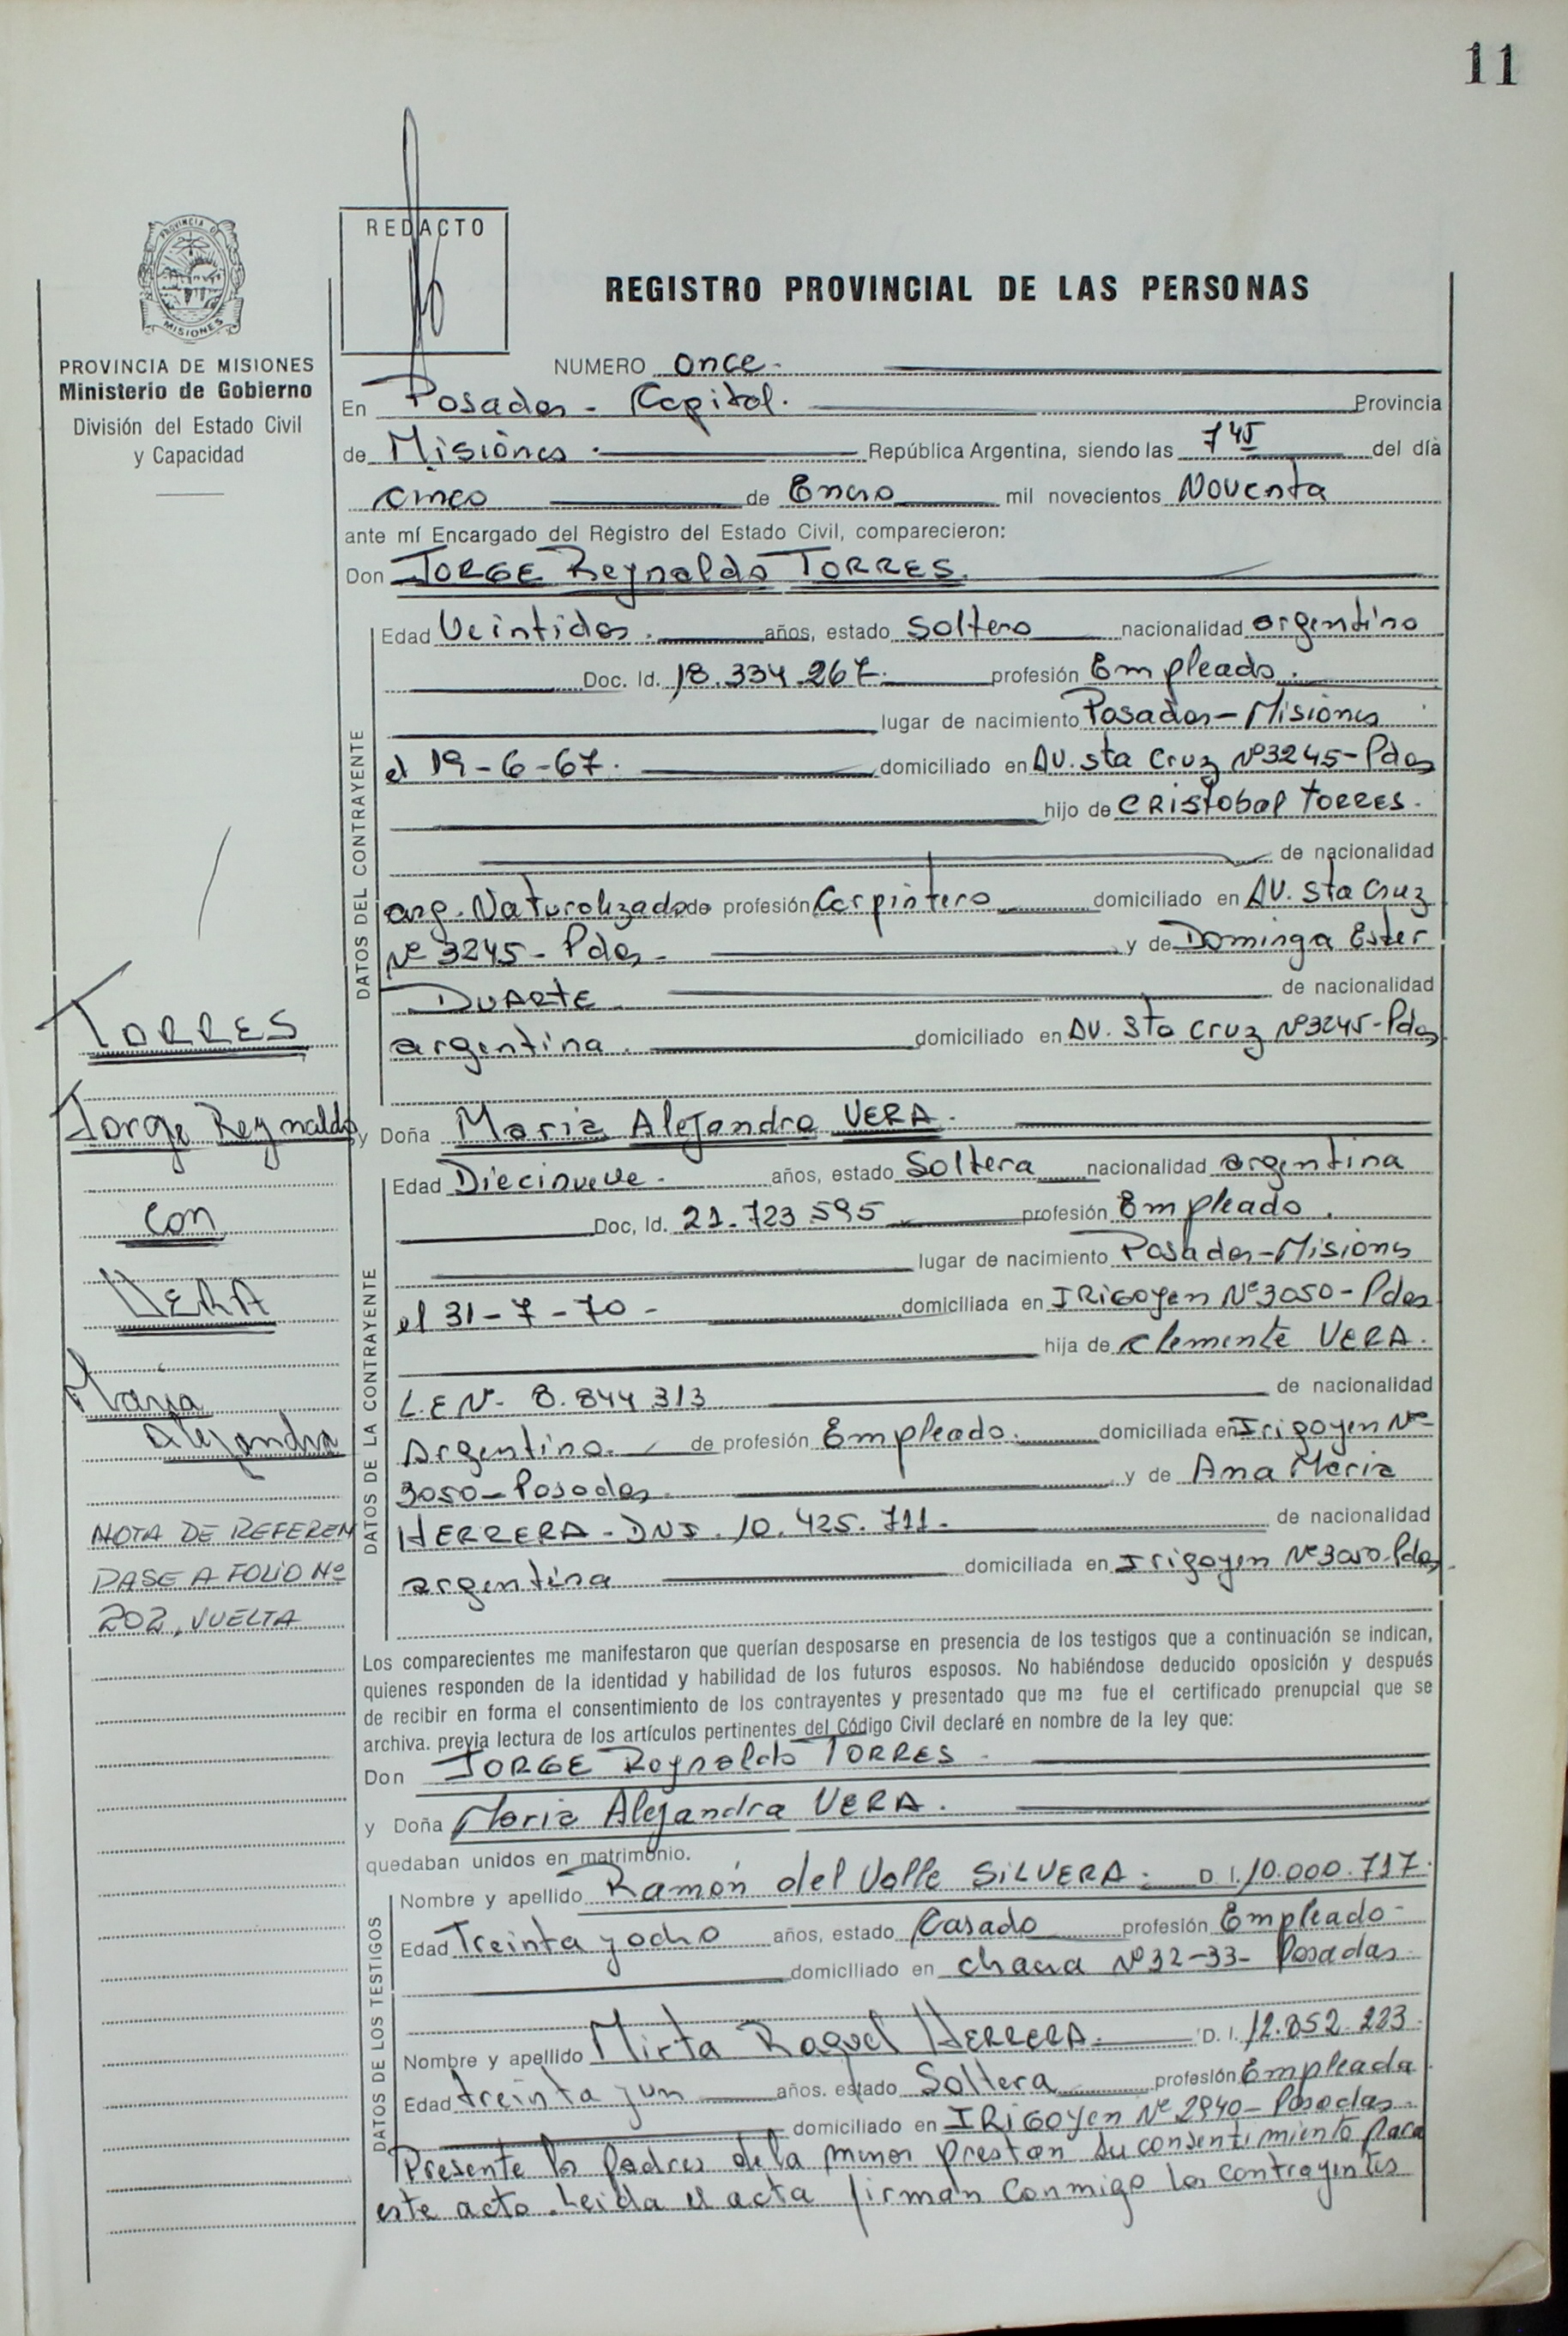 11
REDACTO
PROVINCIA DE MISIONES
REGISTRO PROVINCIAL DE LAS PERSONAS
PROVINCIA DE MISIONES
Ministerio de Gobierno
División del Estado Civil
y Capacidad
NUMERO once.
En Posadas - Capital. Provincia
de Misiones. República Argentina, siendo las 7 45 del día
cinco de Enero mil novecientos Noventa
ante mí Encargado del Registro del Estado Civil, comparecieron:
Don JORGE Reynaldo TORRES.
DATOS DEL CONTRAYENTE
Edad Veintidos. años, estado Soltero nacionalidad argentino
Doc. Id. 18.334.267. profesión Empleado.
lugar de nacimiento Posadas - Misiones
el 19-6-67. domiciliado en AV. Sta Cruz Nº 3245 - Pdas
hijo de CRistobal TORRES.
de nacionalidad
arg. Naturalizado de profesión Carpintero domiciliado en AV. Sta Cruz
Nº 3245 - Pdas - y de Dominga Ester
DUARTE. de nacionalidad
argentina. domiciliado en AV. Sta Cruz Nº 3245 - Pdas
TORRES
Jorge Reynaldo
con
VERA
María
Alejandra
NOTA DE REFEREN
PASE A FOLIO Nº
202, VUELTA
y Doña Maria Alejandra VERA.
DATOS DE LA CONTRAYENTE
Edad Diecinueve. años, estado Soltera nacionalidad argentina
Doc, Id. 21.723.595 profesión Empleado.
lugar de nacimiento Posadas - Misiones
el 31-7-70 - domiciliada en IRIGOYen Nº 3050 - Pdas
hija de Clemente VERA.
L.E Nº 8.844.313 de nacionalidad
Argentino. de profesión Empleado. domiciliada en Irigoyen Nº
3050 - Posadas. y de Ana Maria
HERRERA - DNI. 10.425.711. de nacionalidad
argentina domiciliada en Irigoyen Nº 3050 - Pdas
Los comparecientes me manifestaron que querían desposarse en presencia de los testigos que a continuación se indican,
quienes responden de la identidad y habilidad de los futuros esposos. No habiéndose deducido oposición y después
de recibir en forma el consentimiento de los contrayentes y presentado que me fue el certificado prenupcial que se
archiva. previa lectura de los artículos pertinentes del Código Civil declaré en nombre de la ley que:
Don JORGE Reynaldo TORRES.
y Doña Maria Alejandra VERA.
quedaban unidos en matrimonio.
DATOS DE LOS TESTIGOS
Nombre y apellido Ramón del Valle SILVERA. D. I. 10.000.717.
Edad Treinta y ocho años, estado Casado profesión Empleado -
domiciliado en chacra Nº 32-33- Posadas
Nombre y apellido Mirta Raquel HERRERA. D. I. 12.852.223.
Edad treinta y un años. estado Soltera profesión Empleada
domiciliado en IRIGOYen Nº 2940 - Posadas.
Presente los padres de la menor prestan su consentimiento para
este acto. Leida el acta firman conmigo los contrayentes